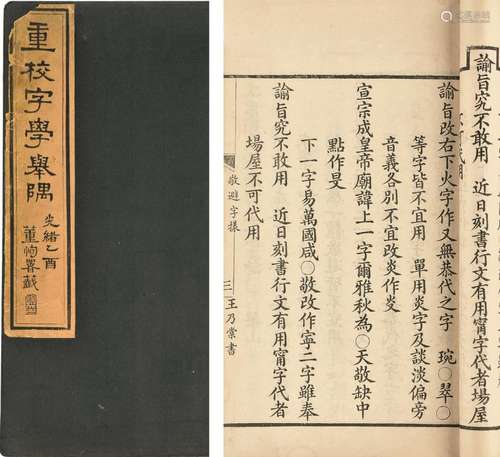 重校字學舉隅
光緒乙酉
董恂署籤
諭旨究不敢用 近日刻書行文有用甯字代者場屋
諭旨改右下火字作又無恭代之字 琬〇翠〇
等字皆不宜用 單用炎字及談淡偏旁
音義各別不宜改炎作
宣宗成皇帝廟諱上一字爾雅秋為〇天敬缺中
點作旻
下一字易萬國咸〇敬改作寧二字雖奉
諭旨究不敢用 近日刻書行文有用甯字代者
場屋不可代用
敬避字樣 三 王乃棠書